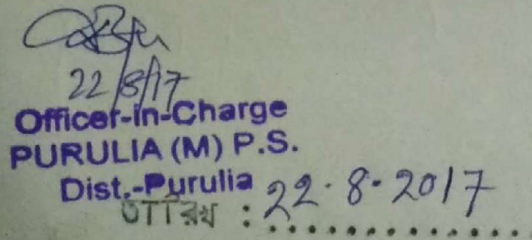 22/8/17
Officer-in-Charge
PURULIA (M) P.S.
Dist.-Purulia
তারিখ : 22.8.2017